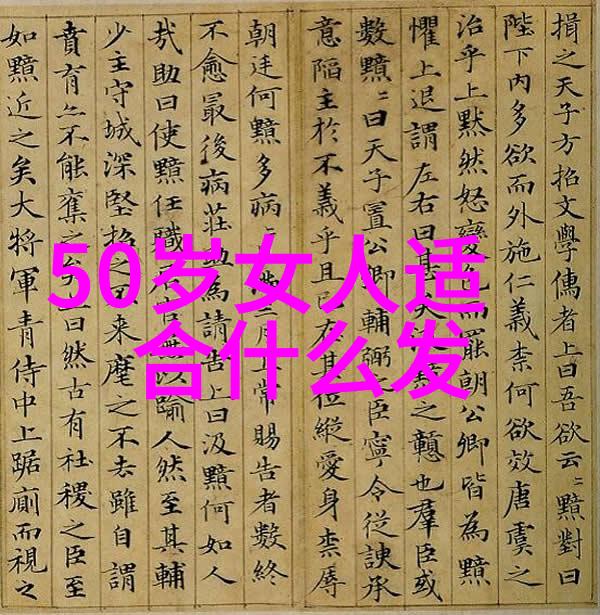 揖之天子方招文學儒者上曰吾欲云〻黯對曰
陛下內多欲而外施仁義柰何欲效唐虞之
治乎上默然怒變色而罷朝公卿皆為黯
懼上退謂左右曰甚矣之戇也羣臣或
數黯〻曰天子置公卿輔弼之臣寧令從諛承
意陷主於不義乎且已在其位縱愛身柰辱
朝廷何黯多病〻滿三月上常賜告者數終
不愈最後病莊助為請告上曰汲黯何如人
哉助曰使黯任職居官無以踰人然至其輔
少主守城深堅招之不來麾之不去雖自謂
賁育亦不能奪之上曰然古有社稷之臣至
如黯近之矣大將軍青侍中上踞廁而視之
50岁女人适
合什么发